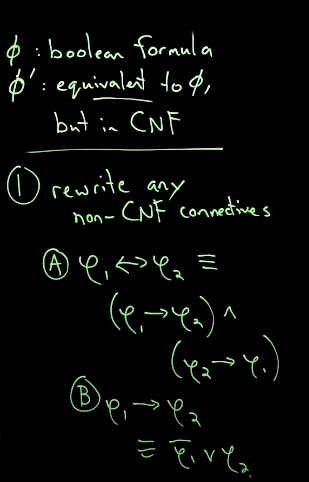 ϕ : boolean formula
ϕ' : equivalent to ϕ,
but in CNF
① rewrite any
non-CNF connectives
Ⓐ φ₁ ↔ φ₂ ≡
(φ₁ → φ₂) ∧
(φ₂ → φ₁)
Ⓑ φ₁ → φ₂
≡ φ̅₁ ∨ φ₂